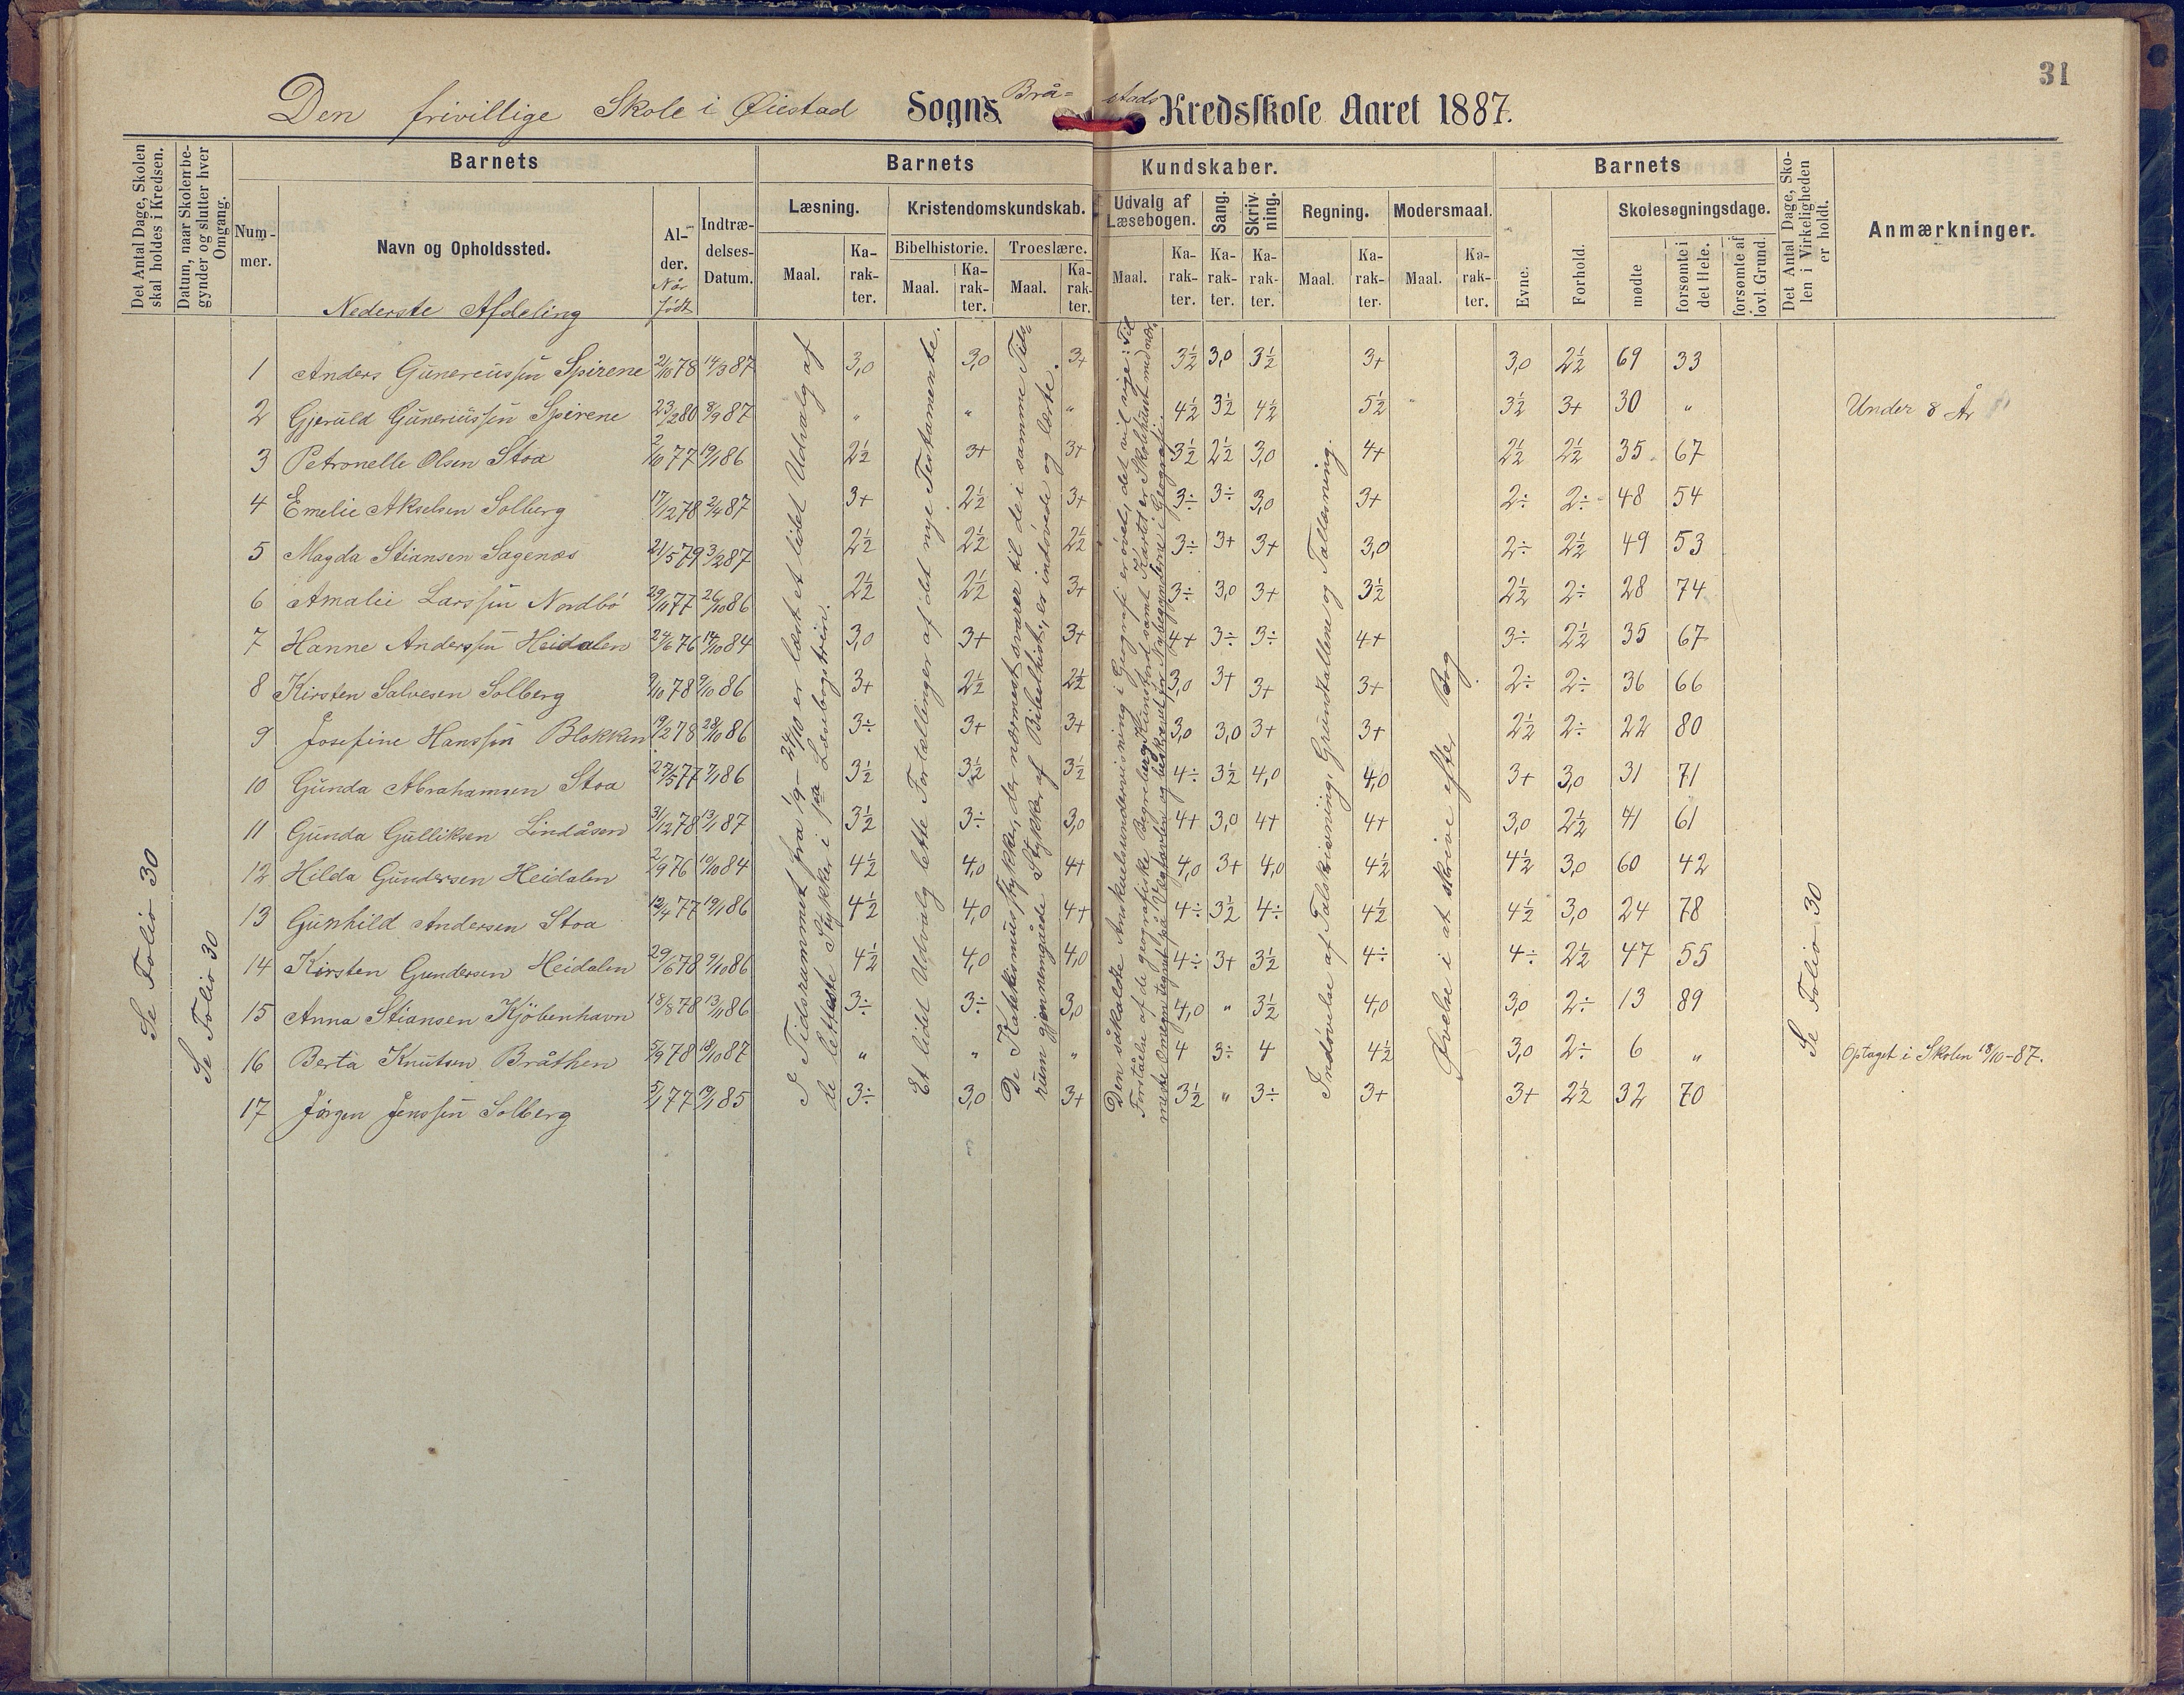 31
Den frivillige Skole i Øiestad Sogns Brå- stads Kredsskole Aaret 1887.
Det Antal Dage, Skolen skal holdes i Kredsen.
Datum, naar Skolen begynder og slutter hver Omgang.
Barnets
Barnets
Kundskaber.
Barnets
Det Antal Dage, Skolen i Virkeligheden er holdt.
Anmærkninger.
Nummer.
Navn og Opholdssted.
Alder. Når født
Indtrædelses-Datum.
Læsning.
Kristendomskundskab.
Udvalg af Læsebogen.
Sang.
Skrivning.
Regning.
Modersmaal.
Evne.
Forhold.
Skolesøgningsdage.
Maal. Karakter.
Bibelhistorie. Troeslære.
Maal. Karakter. Maal. Karakter.
Maal. Karakter. Karakter. Karakter. Maal. Karakter. Maal. Karakter.
mødte
forsømte i det Hele.
forsømte af lovl. Grund.
Nederste Afdeling
1 Anders Gunereussen Spirene 2/10 78 14/3 87 3,0 3,0 3+ 3½ 3,0 3½ 3+ 3,0 2½ 69 33
2 Gjeruld Gunereussen Spirene 23/2 80 8/9 87 " " " 4½ 3½ 4½ 5½ 3½ 3+ 30 " Under 8 År
3 Petronelle Olsen Stoa 2/10 77 19/1 86 2½ 3+ 3+ 3½ 2½ 3,0 4+ 2½ 2½ 35 67
4 Emelie Akselsen Solberg 17/12 78 2/4 87 3+ 2½ 3+ 3÷ 3÷ 3,0 3+ 2÷ 2÷ 48 54
5 Magda Stiansen Sagenæs 21/5 79 3/2 87 2½ 2½ 2½ 3÷ 3+ 3+ 3,0 2÷ 2½ 49 53
6 Amalie Larssen Nordbö 29/11 77 26/10 86 2½ 2½ 3+ 3÷ 3,0 3+ 3½ 2½ 2÷ 28 74
7 Hanne Anderssen Heidalen 24/6 76 14/10 84 3,0 3+ 3+ 4+ 3÷ 3÷ 4+ 3÷ 2½ 35 67
8 Kirsten Salvesen Solberg 9/10 78 9/10 86 3+ 2½ 2½ 3,0 3+ 3+ 3+ 2÷ 2÷ 36 66
9 Josefine Hanssen Blokken 19/2 78 28/10 86 3÷ 3+ 3+ 3,0 3,0 3+ 3+ 2½ 2÷ 22 80
10 Gunda Abrahamsen Stoa 27/5 77 7/1 86 3½ 3½ 3½ 4÷ 3½ 4,0 4,0 3+ 3,0 31 71
11 Gunda Gulliksen Lindåsen 31/12 78 13/1 87 3½ 3÷ 3,0 4+ 3,0 4+ 4+ 3,0 2½ 41 61
12 Hilda Gundersen Heidalen 2/9 76 10/10 84 4½ 4,0 4+ 4,0 3+ 4,0 4½ 4½ 3,0 60 42
13 Gunhild Andersen Stoa 12/4 77 19/1 86 4½ 4,0 4+ 4÷ 3½ 4÷ 4½ 4½ 3,0 24 78
14 Kirsten Gundersen Heidalen 29/6 78 9/10 86 4½ 4,0 4,0 4÷ 3+ 3½ 4÷ 4÷ 2½ 47 55
15 Anna Stiansen Kjöbenhavn 18/8 78 13/1 86 3÷ 3÷ 3,0 4,0 " 3½ 4,0 3,0 2÷ 13 89
16 Berta Knutsen Bråthen 5/9 78 18/10 87 " " " 4 3÷ 4 4½ 3,0 2÷ 6 " Optaget i Skolen 18/10-87.
17 Jörgen Jenssen Solberg 5/1 77 19/1 85 3÷ 3,0 3+ 3½ " 3÷ 3+ 3+ 2½ 32 70
Se Folio 30
Se Folio 30
I Tidsrummet fra 1/9 - 24/10 er læst et lidet Udvalg af
de letteste Stykker i 1ste Læsebogstrin.
Et lidet Udvalg lette Fortællinger af det nye Testamente.
De Katekismusstykker, der nærmest svarer til de i samme Tids-
rum gjennemgåede Stykker af Bibelhist., er indövede og lærte.
Den såkaldte Anskuelsundervisning i Geografi er øvet, det vil sige: Til
Forståelse af de geografiske Begreber Kunstord samt i Kartet er Skolehuset med nær-
meste Omegn tegnet på Vægtavlen og beskrevet for Nybegynderne i Geografi.
Indövelse af Talskrivning, Grundtallene og Tallæsning.
Øvelse i at skrive efter Bog.
Se Folio 30